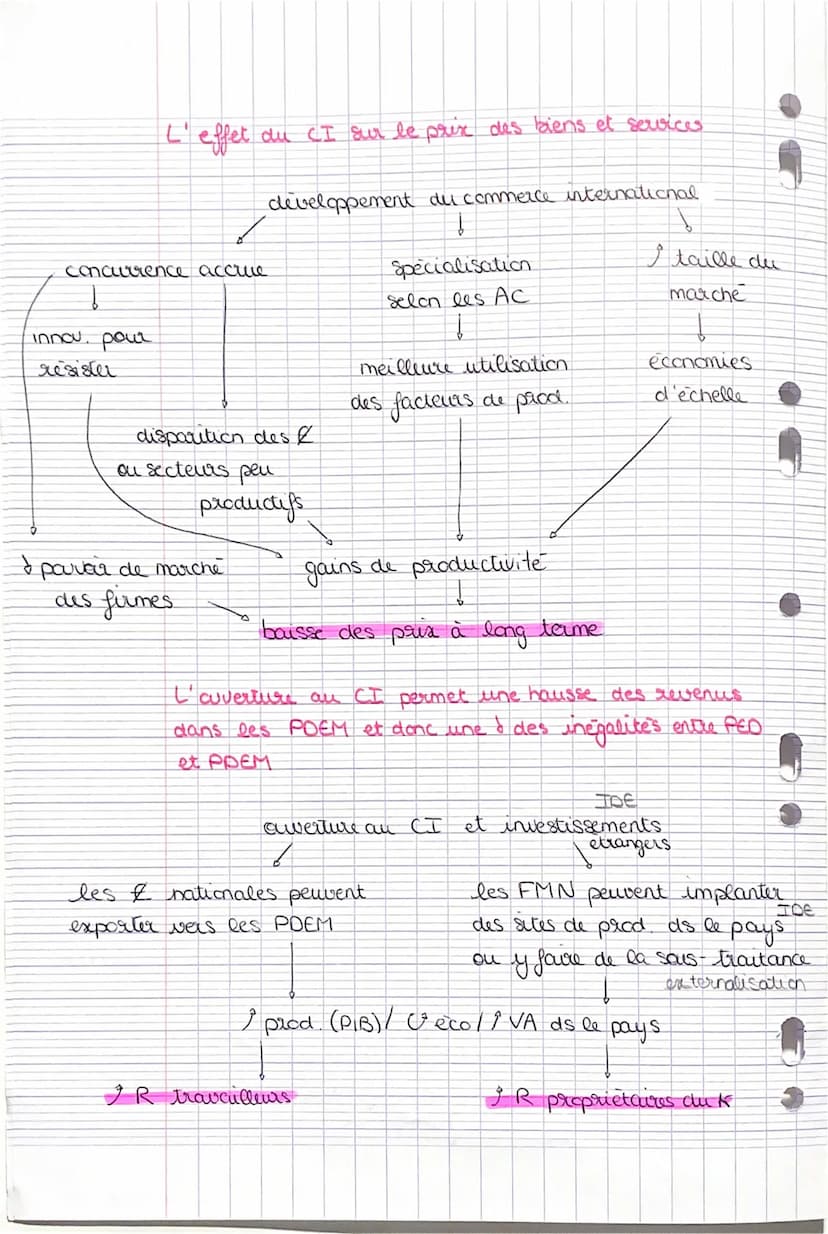 L'effet du CI sur le prix des biens et services
développement du commerce international
concurrence accrue
spécialisation
selon les AC
↗ taille du
marché
innov. pour
résister
meilleure utilisation
des facteurs de prod.
économies
d'échelle
disparition des E
ou secteurs peu
productifs
↘ pouvoir de marché
des firmes
gains de productivité
baisse des prix à long terme
L'ouverture au CI permet une hausse des revenus
dans les PDEM et donc une ↘ des inégalités entre PED
et PDEM
IDE
ouverture au CI et investissements
étrangers
les E nationales peuvent
exporter vers les PDEM
les FMN peuvent implanter
IDE
des sites de prod. ds le pays
ou y faire de la sous-traitance
externalisation
↗ prod. (PIB) / éco / ↗ VA ds le pays
↗ R travailleurs
↗ R propriétaires du K